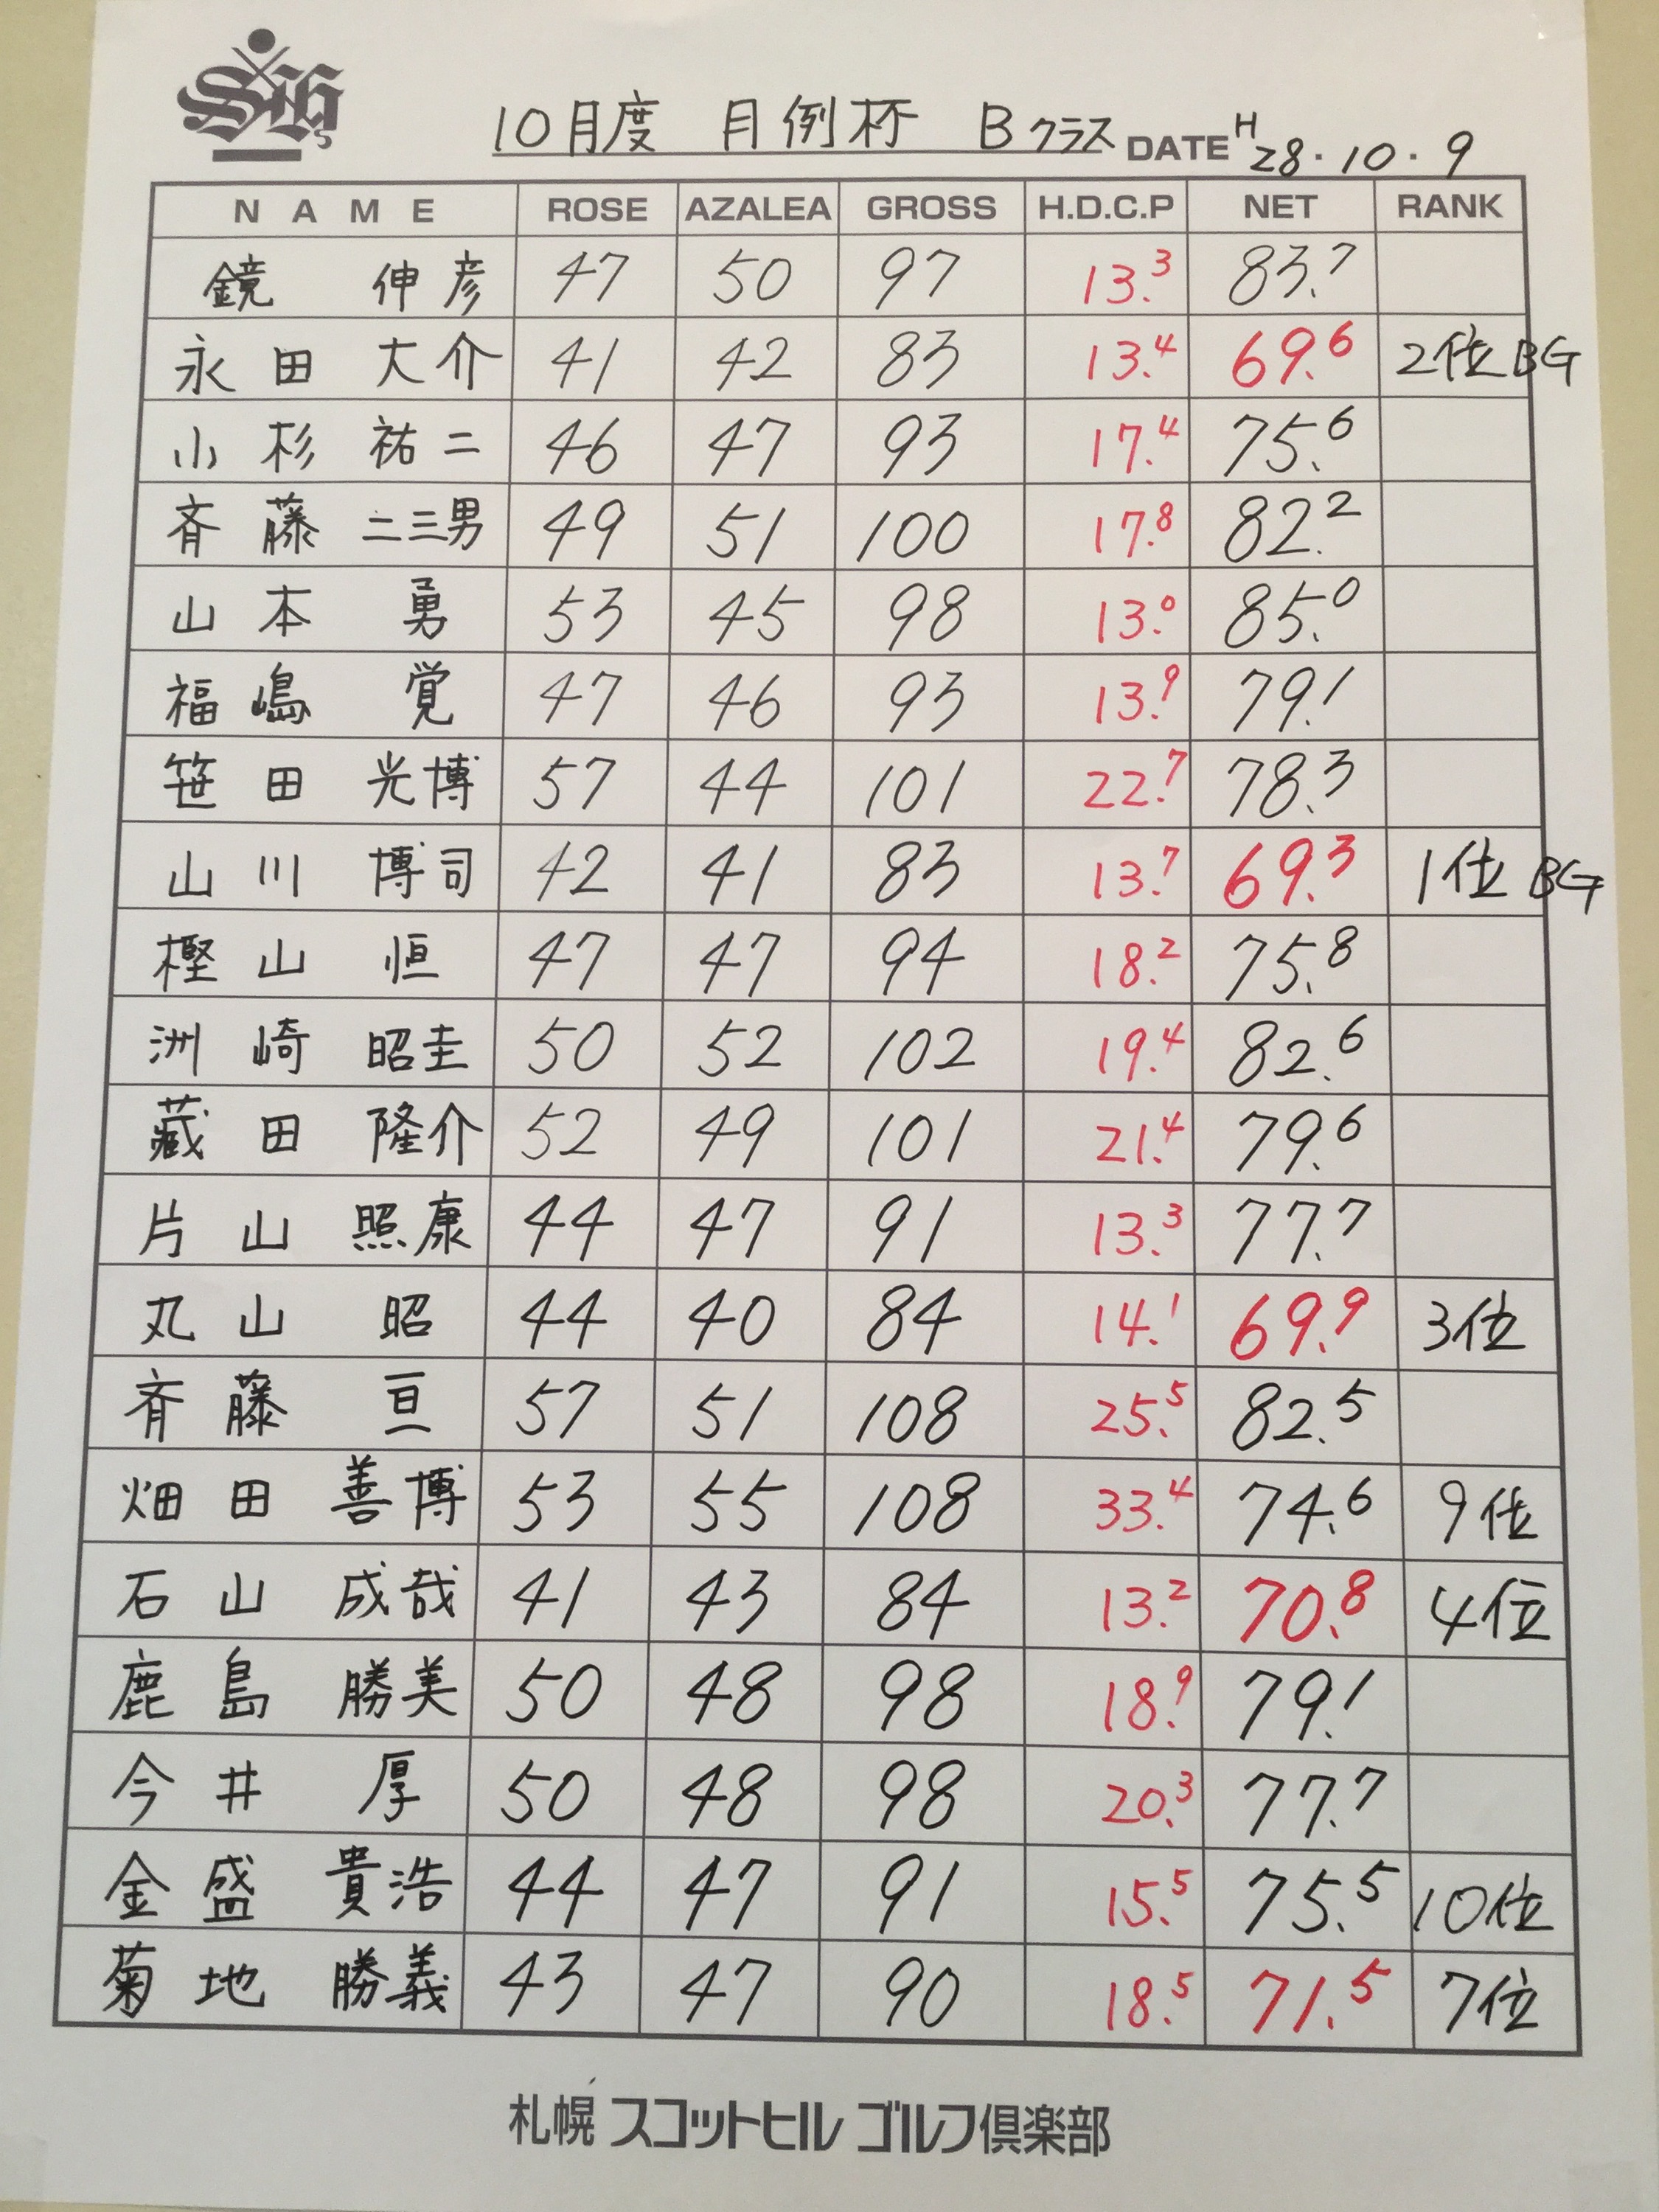 SHG
10月度 月例杯 Bクラス DATE H28.10.9
NAME ROSE AZALEA GROSS H.D.C.P NET RANK
鏡 伸彦 47 50 97 13.3 83.7
永田 大介 41 42 83 13.4 69.6 2位 BG
小杉 祐二 46 47 93 17.4 75.6
斉藤 二三男 49 51 100 17.8 82.2
山本 勇 53 45 98 13.0 85.0
福嶋 覚 47 46 93 13.9 79.1
笹田 光博 57 44 101 22.7 78.3
山川 博司 42 41 83 13.7 69.3 1位 BG
樫山 恒 47 47 94 18.2 75.8
洲崎 昭圭 50 52 102 19.4 82.6
蔵田 隆介 52 49 101 21.4 79.6
片山 照康 44 47 91 13.3 77.7
丸山 昭 44 40 84 14.1 69.9 3位
斉藤 亘 57 51 108 25.5 82.5
畑田 善博 53 55 108 33.4 74.6 9位
石山 成哉 41 43 84 13.2 70.8 4位
鹿島 勝美 50 48 98 18.9 79.1
今井 厚 50 48 98 20.3 77.7
金盛 貴浩 44 47 91 15.5 75.5 10位
菊地 勝義 43 47 90 18.5 71.5 7位
札幌 スコットヒル ゴルフ倶楽部